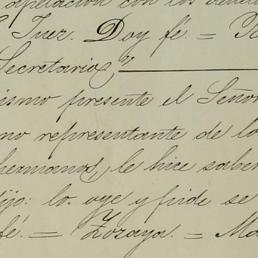 apelación con los
Juez. Doy fé. =
Secretario,
ismo presente el Señor
no representante de lo
hermanos, le hice saber
dijo: lo oye y pide se
fé. = Zozaya. = Ma